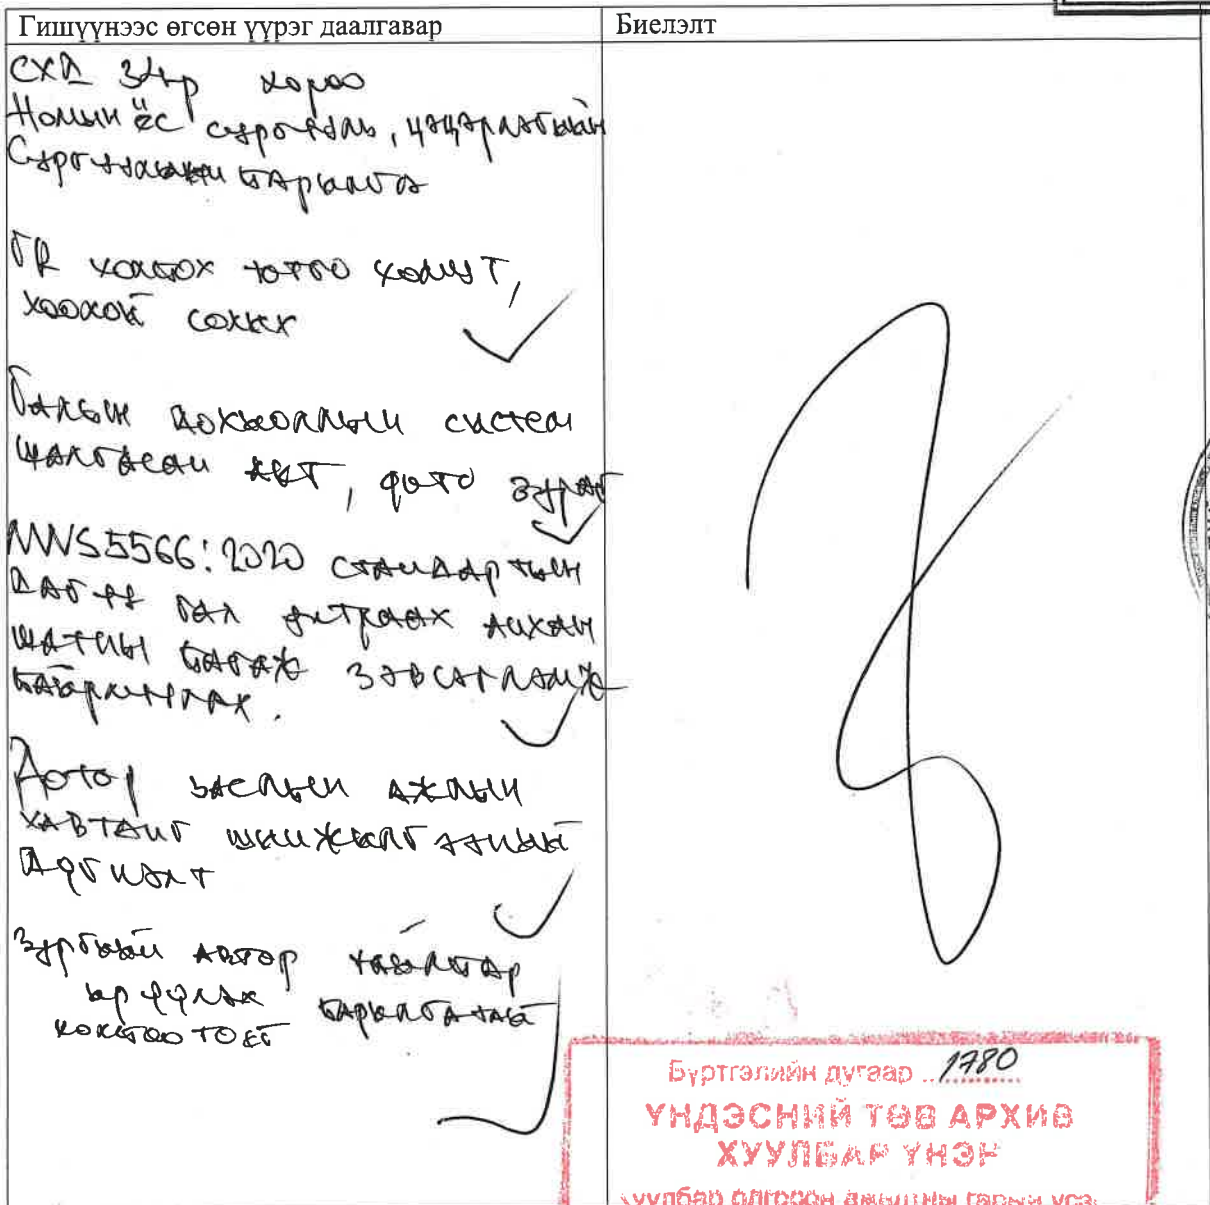 Гишүүнээс өгсөн үүрэг даалгавар
Биелэлт
СХД 34р хороо
Номын ёс сургууль, цэцэрлэгийн
Сургуулийн барилга
холбох тогоо
Галын дохиоллын систем
шалгасан акт, фото зураг
MNS5566:2020 стандартын
дагуу гал унтраах анхан
шатны багаж зэвсэглэмж
байрлуулах.
Дотор заслын ажлын
хавтанг шинжилгээний
дүгнэлт
Зургийн автор тайлбар
ирүүлэх барилгатай
Бүртгэлийн дугаар ..1780
ҮНДЭСНИЙ ТӨВ АРХИВ
ХУУЛБАР ҮНЭН
хуулбар олгосон ажилтны гарын үсэг